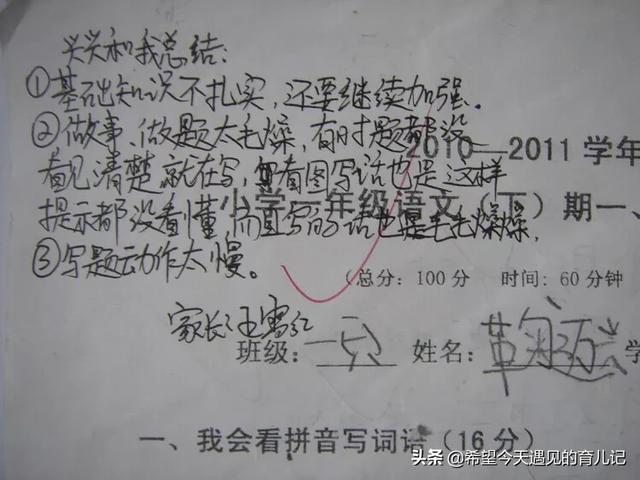 兴兴和我总结：
①基础知识不扎实，还要继续加强。
②做事、做题太毛燥，有时题都没
看见清楚就在写，如看图写话也是这样
提示都没看懂，而且写的话也是毛毛燥燥，
③写题动作太慢。
家长：王雪红
2010—2011 学年
小学一年级语文（下）期一、
（总分：100分 时间：60分钟
班级： 姓名： 学
一、我会看拼音写词语（16分）
头条 @希望今天遇见的育儿记